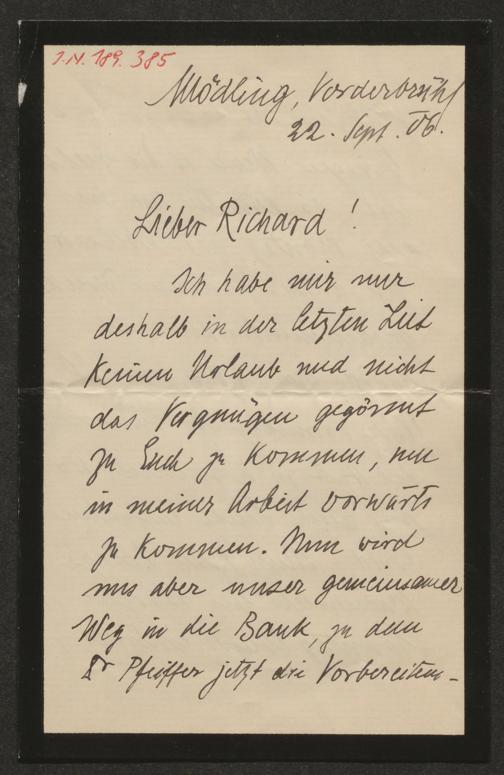 I.N. 189.385
Mödling, Vorderbrühl
22. Sept. 06.
Lieber Richard!
Ich habe mir nur
deshalb in der letzten Zeit
keinen Urlaub und nicht
das Vergnügen gegönnt
zu Euch zu kommen, um
in meiner Arbeit vorwärts
zu kommen. Nun wird
uns aber unser gemeinsamer
Weg in die Bank, zu dem
Dr Pfeiffer jetzt die Vorbereitun-